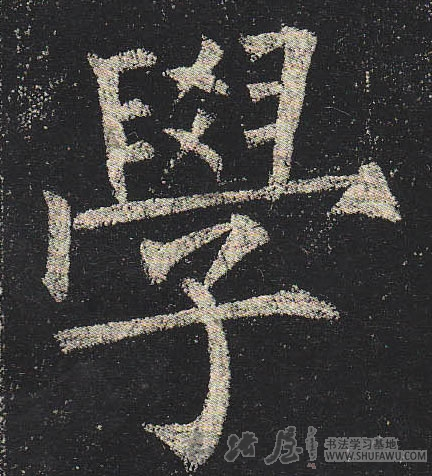 學
书法学习基地
www.SHUFAWU.com